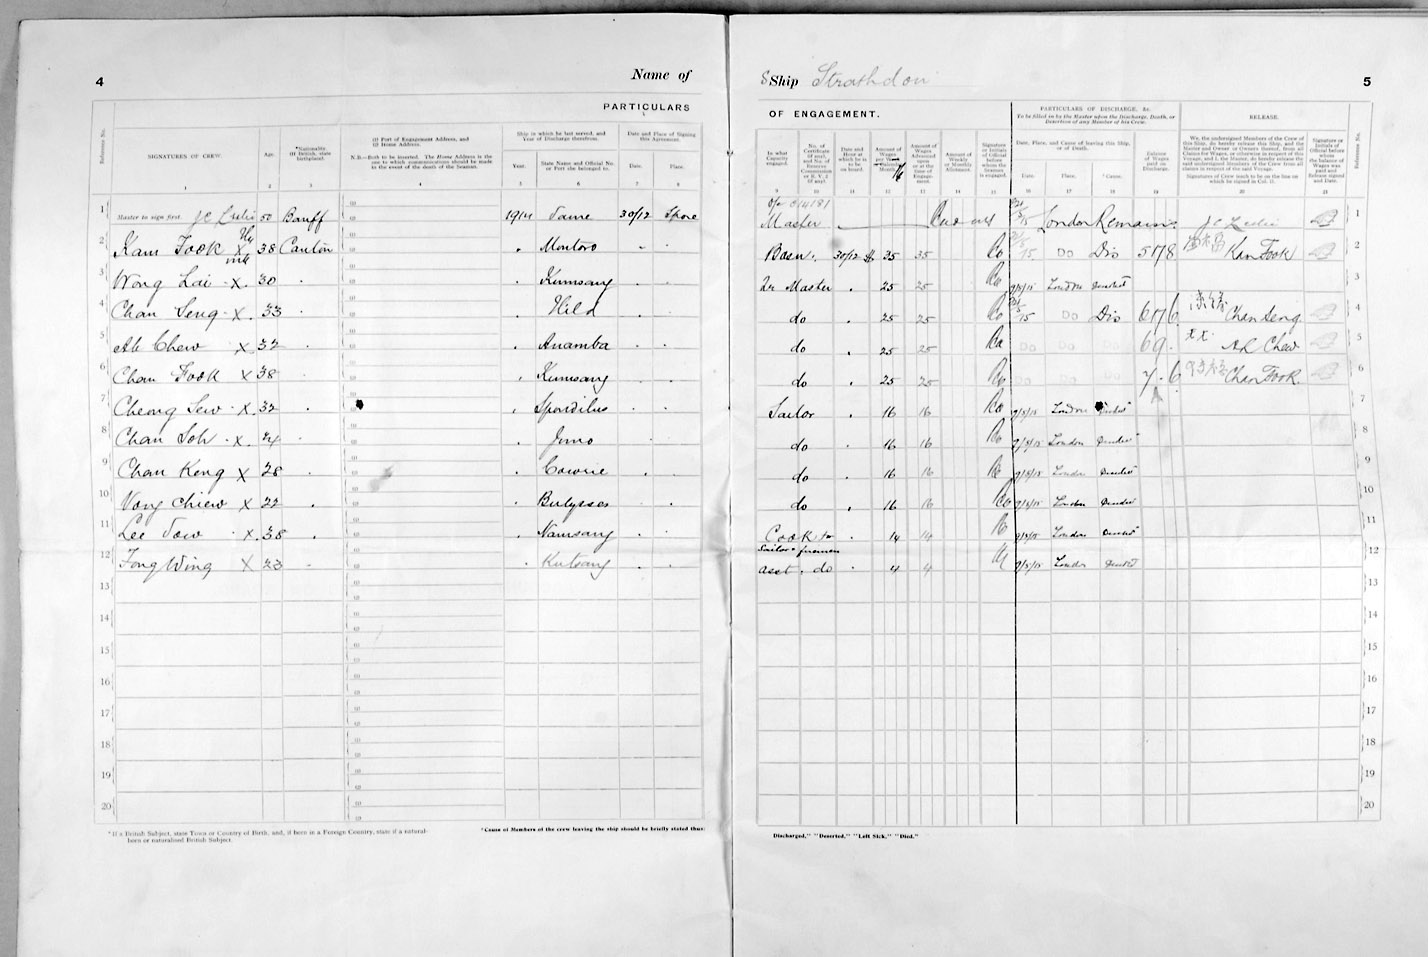 4
Name of
PARTICULARS
Reference No.
SIGNATURES OF CREW.
Age.
*Nationality
(If British, state
birthplace).
(1) Port of Engagement Address, and
(2) Home Address.
N.B.—Both to be inserted. The Home Address is the
one to which communications should be made
in the event of the death of the Seaman.
Ship in which he last served, and
Year of Discharge therefrom.
Year.
State Name and Official No.
or Port she belonged to.
Date and Place of Signing
this Agreement.
Date.
Place.
1 2 3 4 5 6 7 8
1 Master to sign first. J C Leslie 50 Banff 1914 Same 30/12 Spore
2 Kam Fook X 38 Canton Montoro
3 Wong Lai X 30 Kumsang
4 Chan Seng X 33 Hild
5 Ah Chew X 32 Anamba
6 Chan Fook X 38 Kumsang
7 Cheong Sew X 32 Spondilus
8 Chan Soh X 24 Juno
9 Chan Keng X 28 Cowrie
10 Vong Chiew X 22
11 Lee Tow X 38 Namsang
12 Fong Wing X 23 Kutsang
13
14
15
16
17
18
19
20
*If a British Subject, state Town or Country of Birth, and, if born in a Foreign Country, state if a natural-
born or naturalised British Subject.
†Cause of Members of the crew leaving the ship should be briefly stated thus:
SShip Strathdon
5
OF ENGAGEMENT.
PARTICULARS OF DISCHARGE, &c.
To be filled in by the Master upon the Discharge, Death, or
Desertion of any Member of his Crew.
RELEASE.
In what
Capacity
engaged.
No. of
Certificate
(if any),
and No. of
Reserve
Commission
or R. V. 2
(if any).
Date and
Hour at
which he is
to be
on board.
Amount of
Wages
per Week
Calendar
Month.
Amount of
Wages
Advanced
upon
or at the
time of
Engage-
ment.
Amount of
Weekly
or Monthly
Allotment.
Signature
or Initials
of Official
before
whom the
Seaman
is engaged.
Date, Place, and Cause of leaving this Ship,
or of Death.
Date.
Place.
†Cause.
Balance
of Wages
paid on
Discharge.
We, the undersigned Members of the Crew of
this Ship, do hereby release this Ship, and the
Master and Owner or Owners thereof, from all
Claims for Wages, or otherwise in respect of this
Voyage, and I, the Master, do hereby release the
said undersigned Members of the Crew from all
claims in respect of the said Voyage.
Signatures of Crew (each to be on the line on
which he signed in Col. 1).
Signature or
Initials of
Official before
whom the
balance of
Wages was
paid and
Release signed
and Date.
Reference No.
9 10 11 12 13 14 15 16 17 18 19 20 21
Master 014181 London Remains J C Leslie 1
Bosn. 30/12 $ 35 35 Do Dis 5 17 8 Kam Fook 2
2r Master 25 25 London Deserted 3
do 25 25 Do Dis 6 17 6 Chan Seng 4
do 25 25 Do Do Do 6 9 Ah Chew 5
do 25 25 Do Do Do 7 . 6 Chan Fook 6
Sailor 16 16 London 7
do 16 16 London Deserted 8
do 16 16 London Deserted 9
do 16 16 London Deserted 10
Cook 14 14 London Deserted 11
Sailors firemen 12
asst. do 4 4 London Deserted
13
14
15
16
17
18
19
20
Discharged," "Deserted," "Left Sick," "Died."